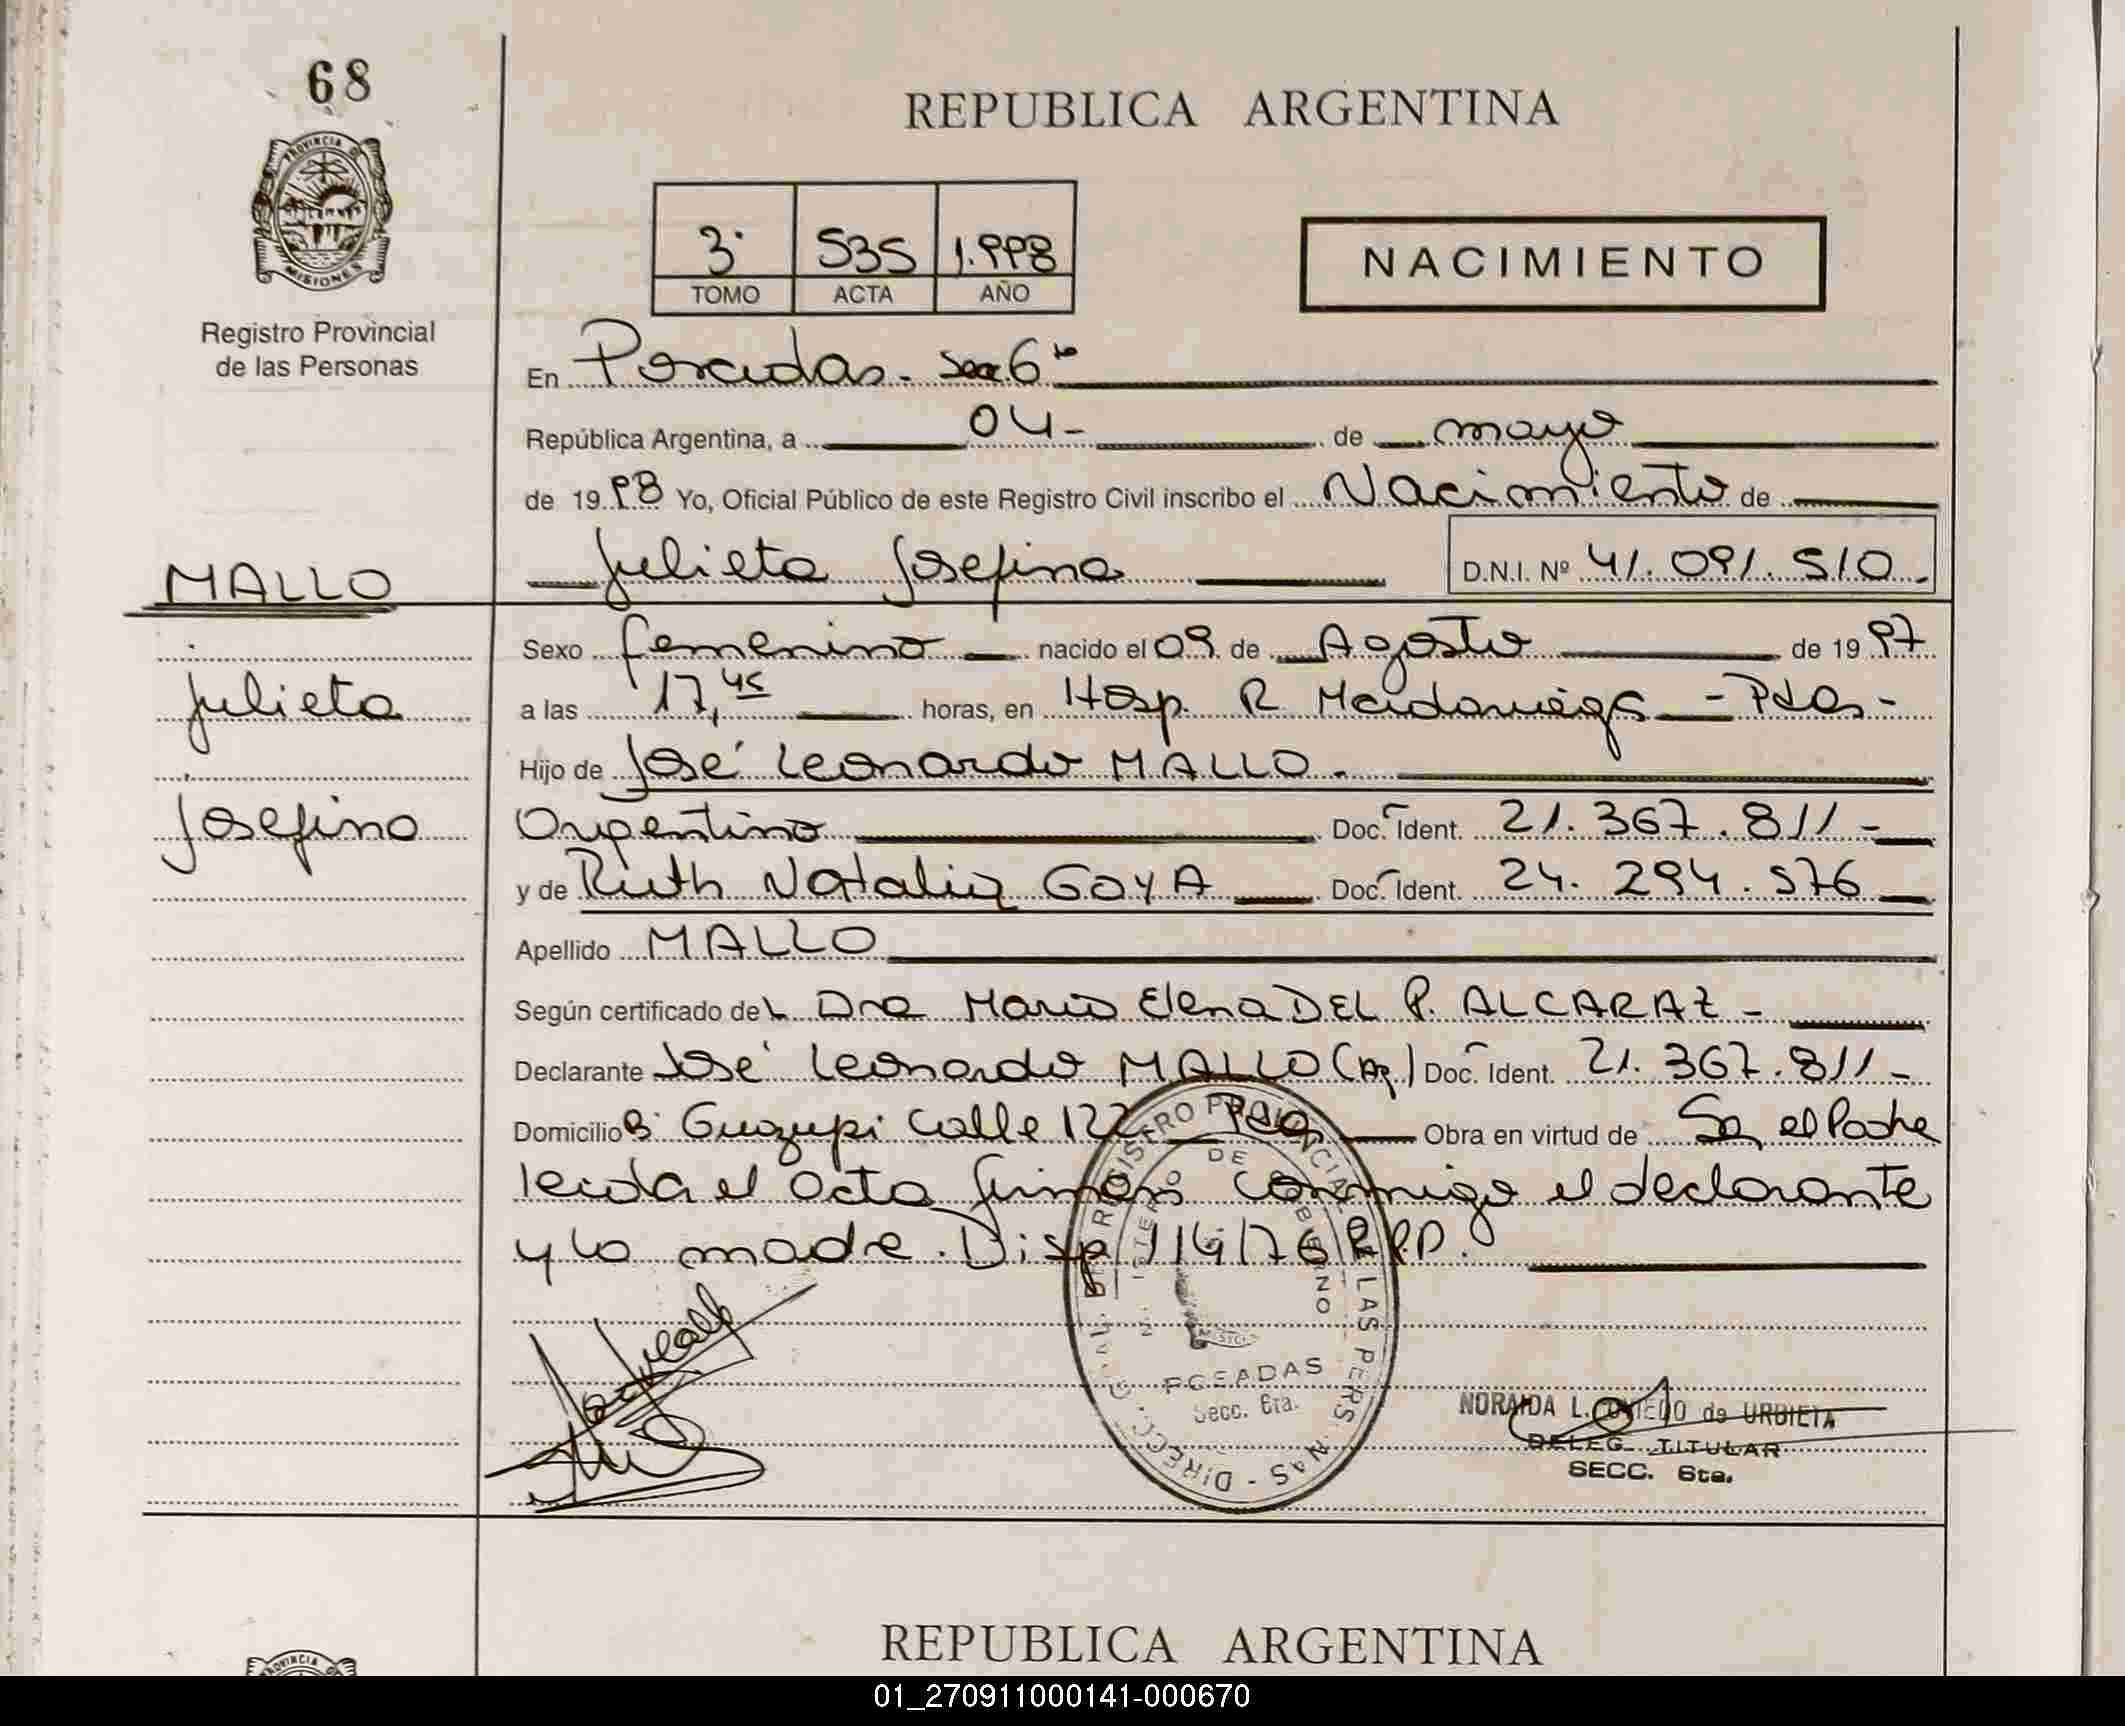 68
REPUBLICA ARGENTINA
PROVINCIA DE
MISIONES
3° 535 1.998
TOMO ACTA AÑO
NACIMIENTO
Registro Provincial
de las Personas
En Posadas - Secc 6ta
República Argentina, a 04- de mayo
de 19 98 Yo, Oficial Público de este Registro Civil inscribo el Nacimiento de
MALLO
Julieta Josefina D.N.I. Nº 41.091.510.
Sexo femenino nacido el 09 de Agosto de 19 97
Julieta
a las 17,45 horas, en Hosp. R Madariaga - Pdas -
Hijo de José Leonardo MALLO.
Josefina
Argentino Doc. Ident. 21.367.811-
y de Ruth Natalia GOYA Doc. Ident. 24.294.576
Apellido MALLO
Según certificado de L Dra Maria Elena DEL P. ALCARAZ -
Declarante José Leonardo MALLO (Ar.) Doc. Ident. 21.367.811-
Domicilio Bº Guazupi Calle 122 Pdas Obra en virtud de Ser el Padre
leida el acta firman conmigo el declarante
y la madre. Disp 114/76 R.P.P.
REGISTRO PROVINCIAL DE LAS PERSONAS - DIRECC.
MINISTERIO DE GOBIERNO
POSADAS
Secc. 6ta.
NORAIDA L. OVIEDO de URBIETA
DELEG. TITULAR
SECC. 6ta.
REPUBLICA ARGENTINA
PROVINCIA
01_270911000141-000670